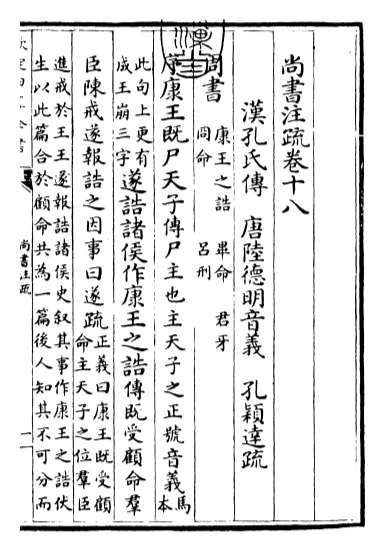 尚書注疏卷十八
漢孔氏傳　唐陸德明音義　孔穎達疏
周書　康王之誥　畢命　君牙
冏命　呂刑
序康王既尸天子傳尸主也主天子之正號音義馬本
此句上更有
成王崩三字遂誥諸侯作康王之誥傳既受顧命羣
臣陳戒遂報誥之因事曰遂疏正義曰康王既受顧
命主天子之位羣臣
進戒於王王遂報誥諸侯史敘其事作康王之誥伏
生以此篇合於顧命共為一篇後人知其不可分而
尚書注疏
一